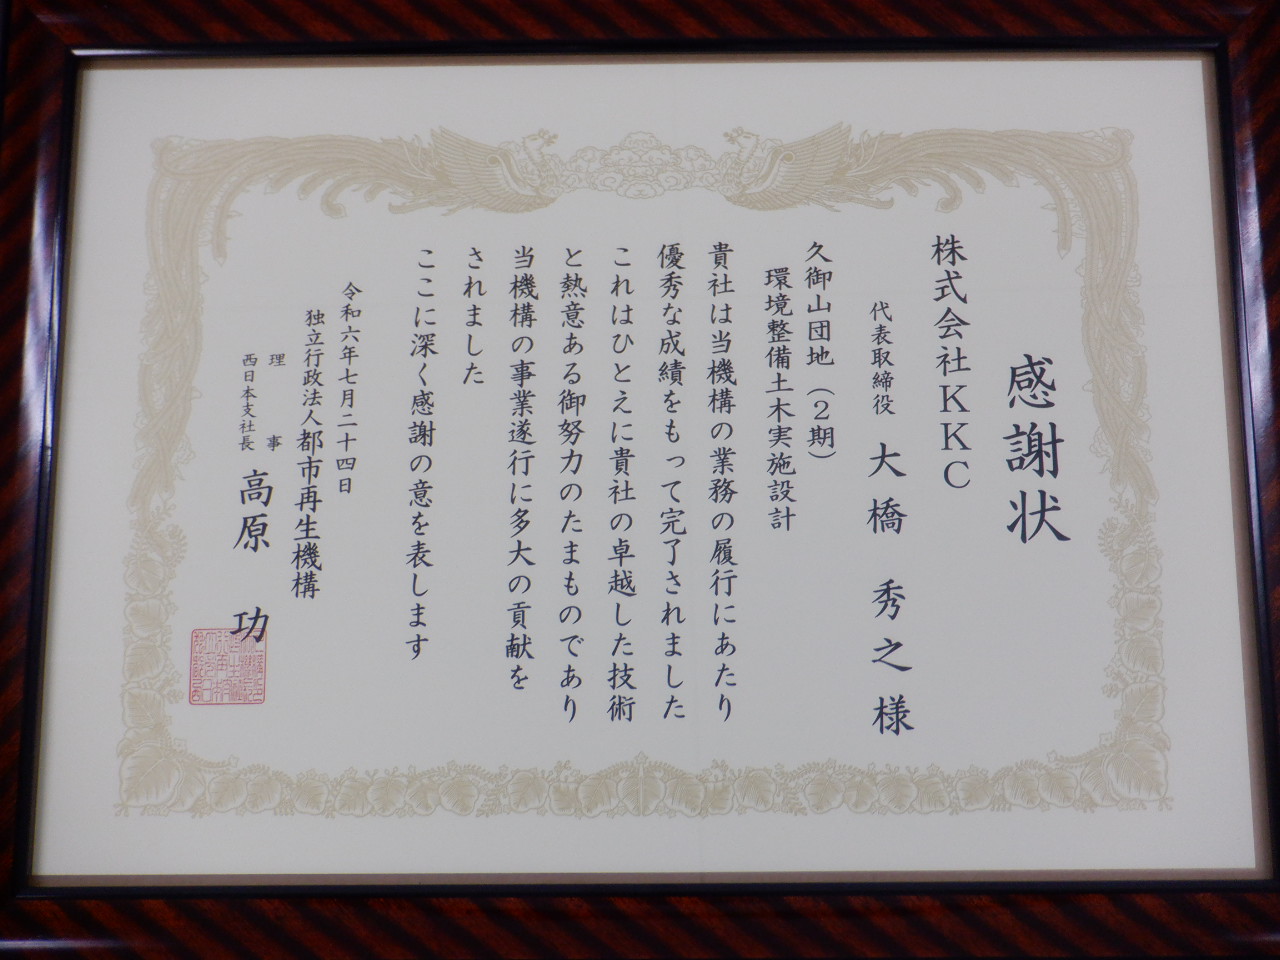 感謝状
株式会社KKC
代表取締役 大橋 秀之様
久御山団地（2期）
環境整備土木実施設計
貴社は当機構の業務の履行にあたり
優秀な成績をもって完了されました
これはひとえに貴社の卓越した技術
と熱意ある御努力のたまものであり
当機構の事業遂行に多大の貢献を
されました
ここに深く感謝の意を表します
令和六年七月二十四日
独立行政法人都市再生機構
理事
西日本支社長 高原 功